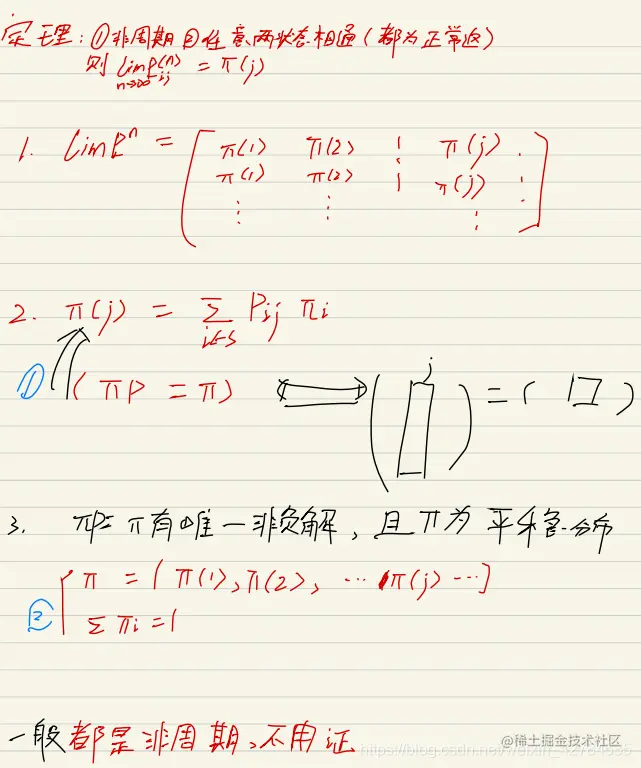 定理:①非周期②任意两状态相通(都为正常返)
则 lim P_ij^(n) = π(j)
n→∞
1. lim P^n = [ π(1) π(2) ⋮ π(j) ⋮
π(1) π(2) ⋮ π(j) ⋮
⋮ ⋮ ⋮ ]
2. π(j) = Σ Pij πi
i∈S
① (πP = π) ⟺ ( j ) = ( )
3. πP=π有唯一非负解,且π为平稳分布
② { π = [π(1), π(2), ⋯ π(j) ⋯]
Σπi = 1
一般都是非周期,不用证
@稀土掘金技术社区